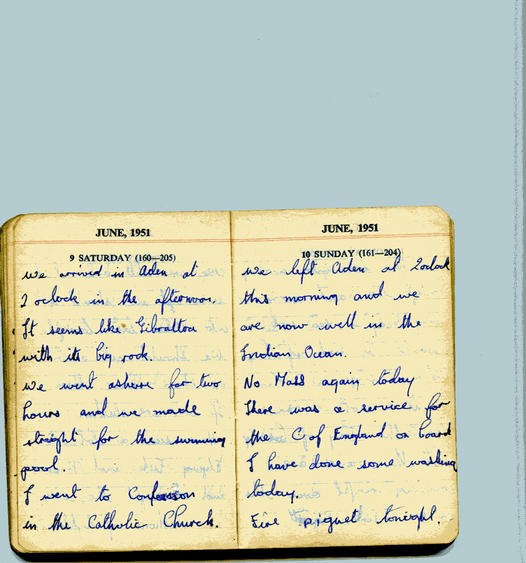 JUNE, 1951
9 SATURDAY (160—205)
we arrived in Aden at
2 oclock in the afternoon.
It seems like Gibralta
with its big rock.
we went ashore for two
hours and we made
straight for the swimming
pool.
I went to Confession
in the Catholic Church.
JUNE, 1951
10 SUNDAY (161—204)
we left Aden at 2oclock
this morning and we
are now well in the
Indian Ocean.
No Mass again today
There was a service for
the C of England on board
I have done some washing
today.
Fire piquet tonight.